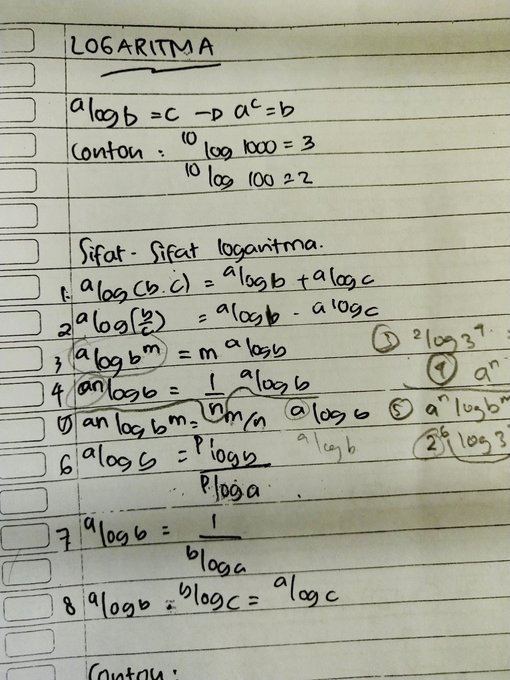 LOGARITMA
ᵃlog b = c → aᶜ = b
Contoh : ¹⁰log 1000 = 3
¹⁰log 100 = 2
Sifat - Sifat logaritma.
1. ᵃlog (b.c) = ᵃlog b + ᵃlog c
2 ᵃlog (b/c) = ᵃlog b - ᵃlog c
3 ᵃlog bᵐ = m ᵃlog b
③ ²log 3⁹
4 aⁿ log b = 1/n ᵃlog b
④ aⁿ
5 aⁿ log bᵐ = m/n ᵃlog b
⑤ aⁿ log bᵐ
ᵃlog b
2⁶ log 3
6 ᵃlog b = ᵖlog b / ᵖlog a
7 ᵃlog b = 1 / ᵇlog a
8 ᵃlog b . ᵇlog c = ᵃlog c
Contoh :